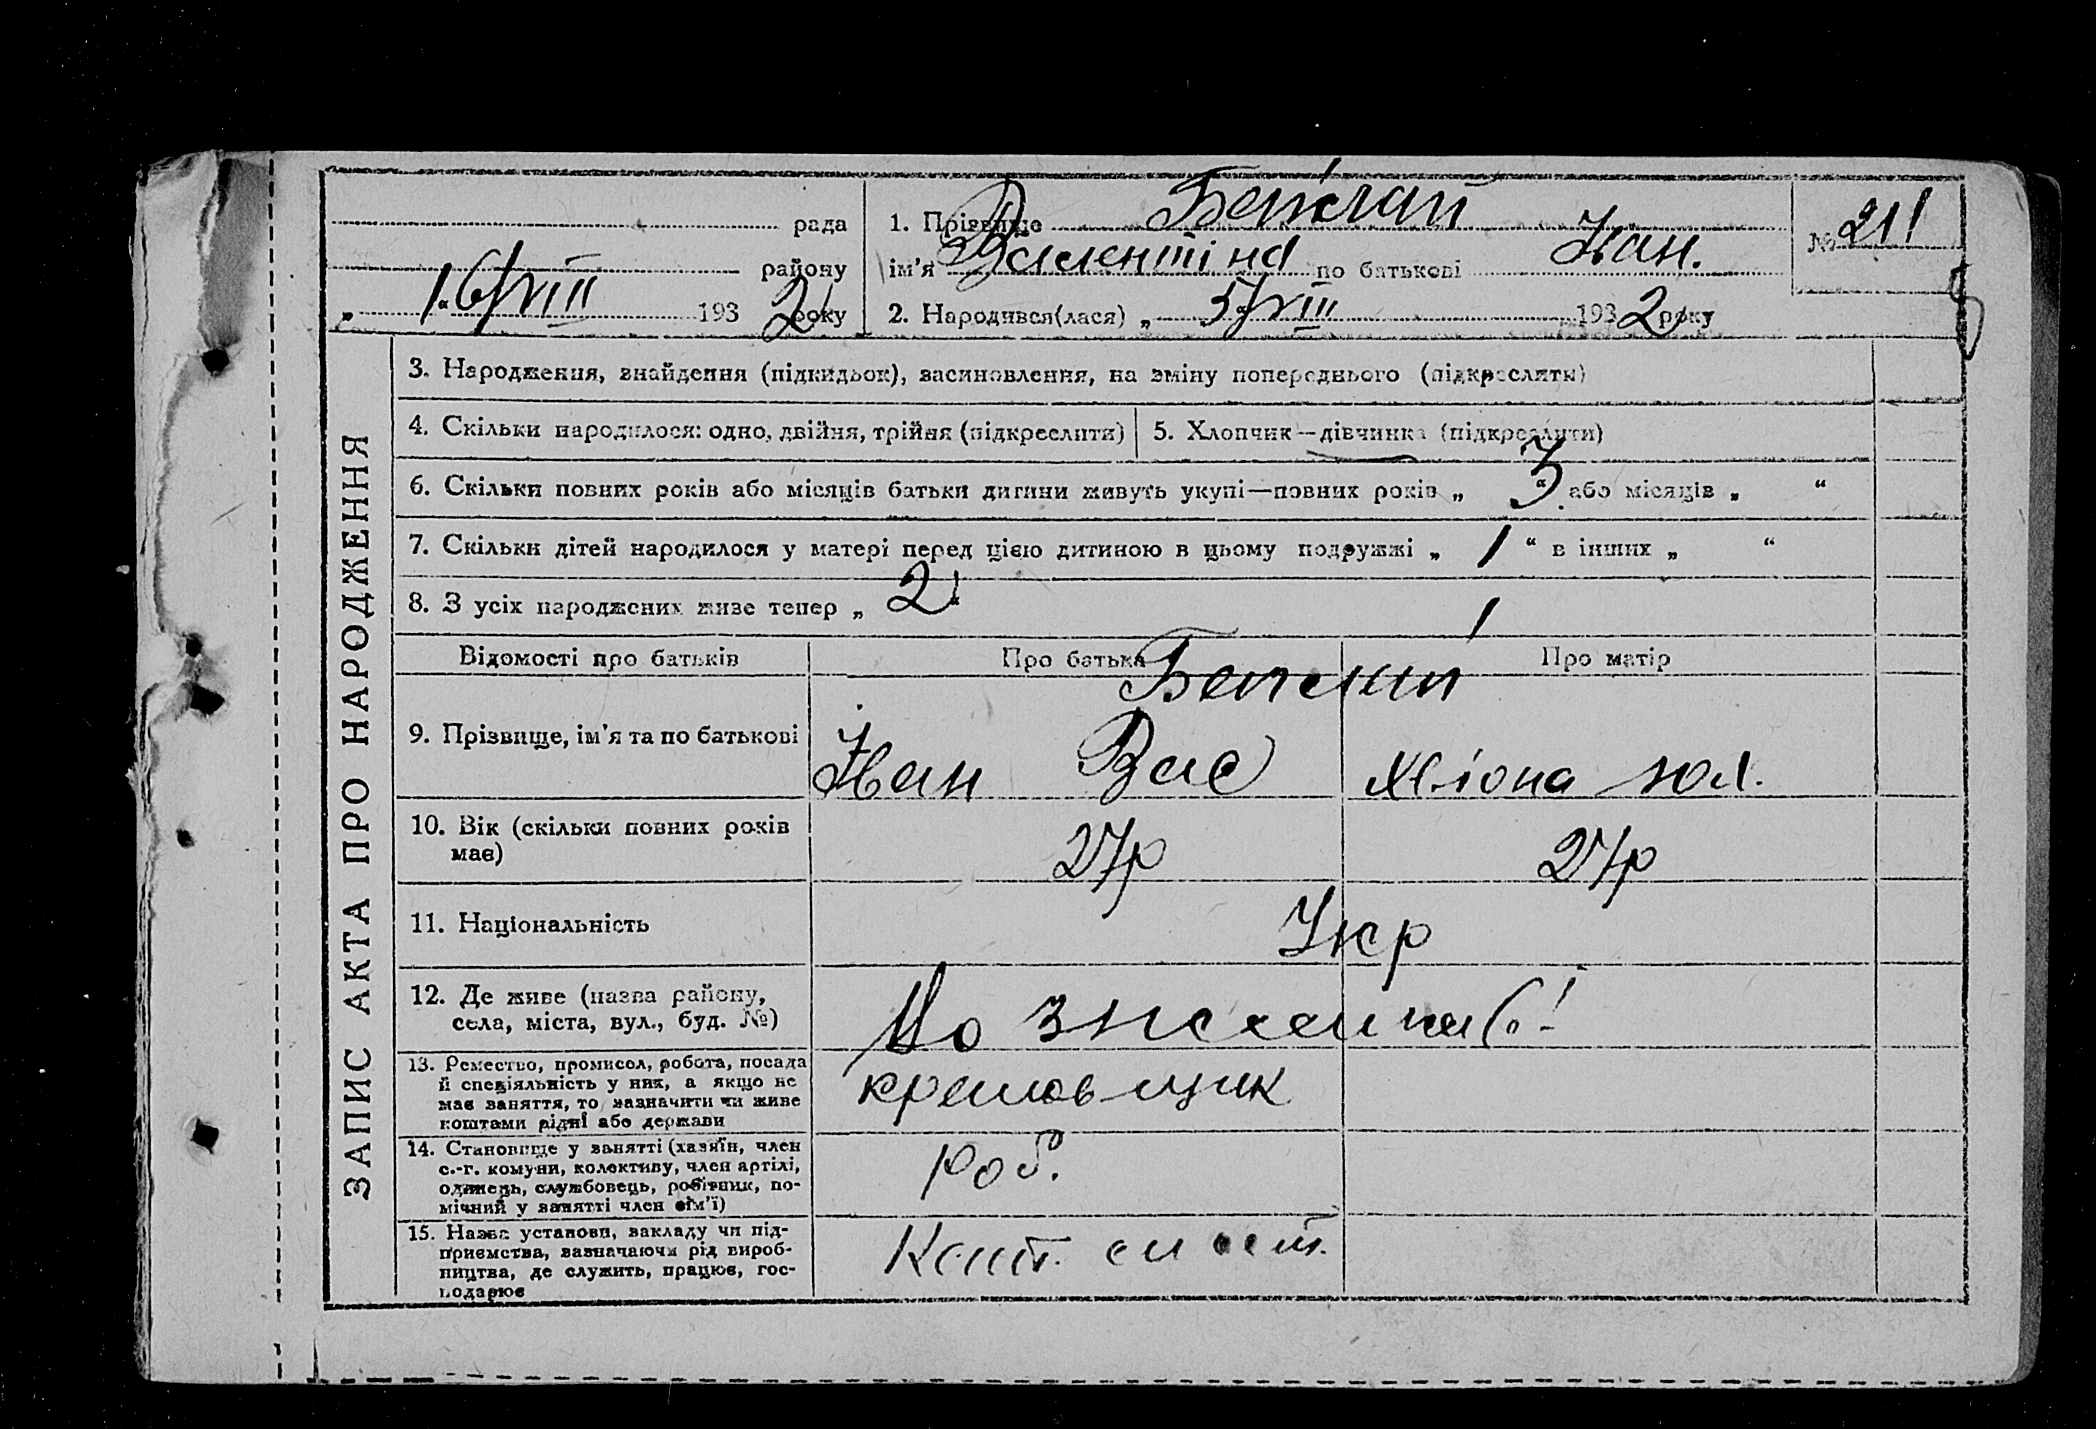 рада
району
„ 16/VIII 1932 року
1. Прізвище
ім'я Валентіна по батькові Іван.
2. Народився(лася) „ 5/VIII 1932 року
№ 211
ЗАПИС АКТА ПРО НАРОДЖЕННЯ
3. Народження, знайдення (підкидьок), засиновлення, на зміну попереднього (підкреслити)
4. Скільки народилося: одно, двійня, трійня (підкреслити)
5. Хлопчик—дівчинка (підкреслити)
6. Скільки повних років або місяців батьки дитини живуть укупі—повних років „ 3 “ або місяців „ “
7. Скільки дітей народилося у матері перед цією дитиною в цьому подружжі „ 1 “ в інших „ “
8. З усіх народжених живе тепер „ 2 “
Відомості про батьків
Про батька
Про матір
9. Прізвище, ім'я та по батькові
Іван Вас
10. Вік (скільки повних років
має)
27р
27р
11. Національність
Укр
12. Де живе (назва району,
села, міста, вул., буд. №)
13. Ремество, промисел, робота, посада
й спеціяльність у них, а якщо не
має заняття, то зазначити чи живе
коштами рідні або держави
14. Становище у занятті (хазяїн, член
с.-г. комуни, колективу, член артілі,
одинець, службовець, робітник, по-
мічний у занятті член сім'ї)
Роб.
15. Назва установи, закладу чи під-
приємства, зазначаючи рід вироб-
ництва, де служить, працює, гос-
подарює